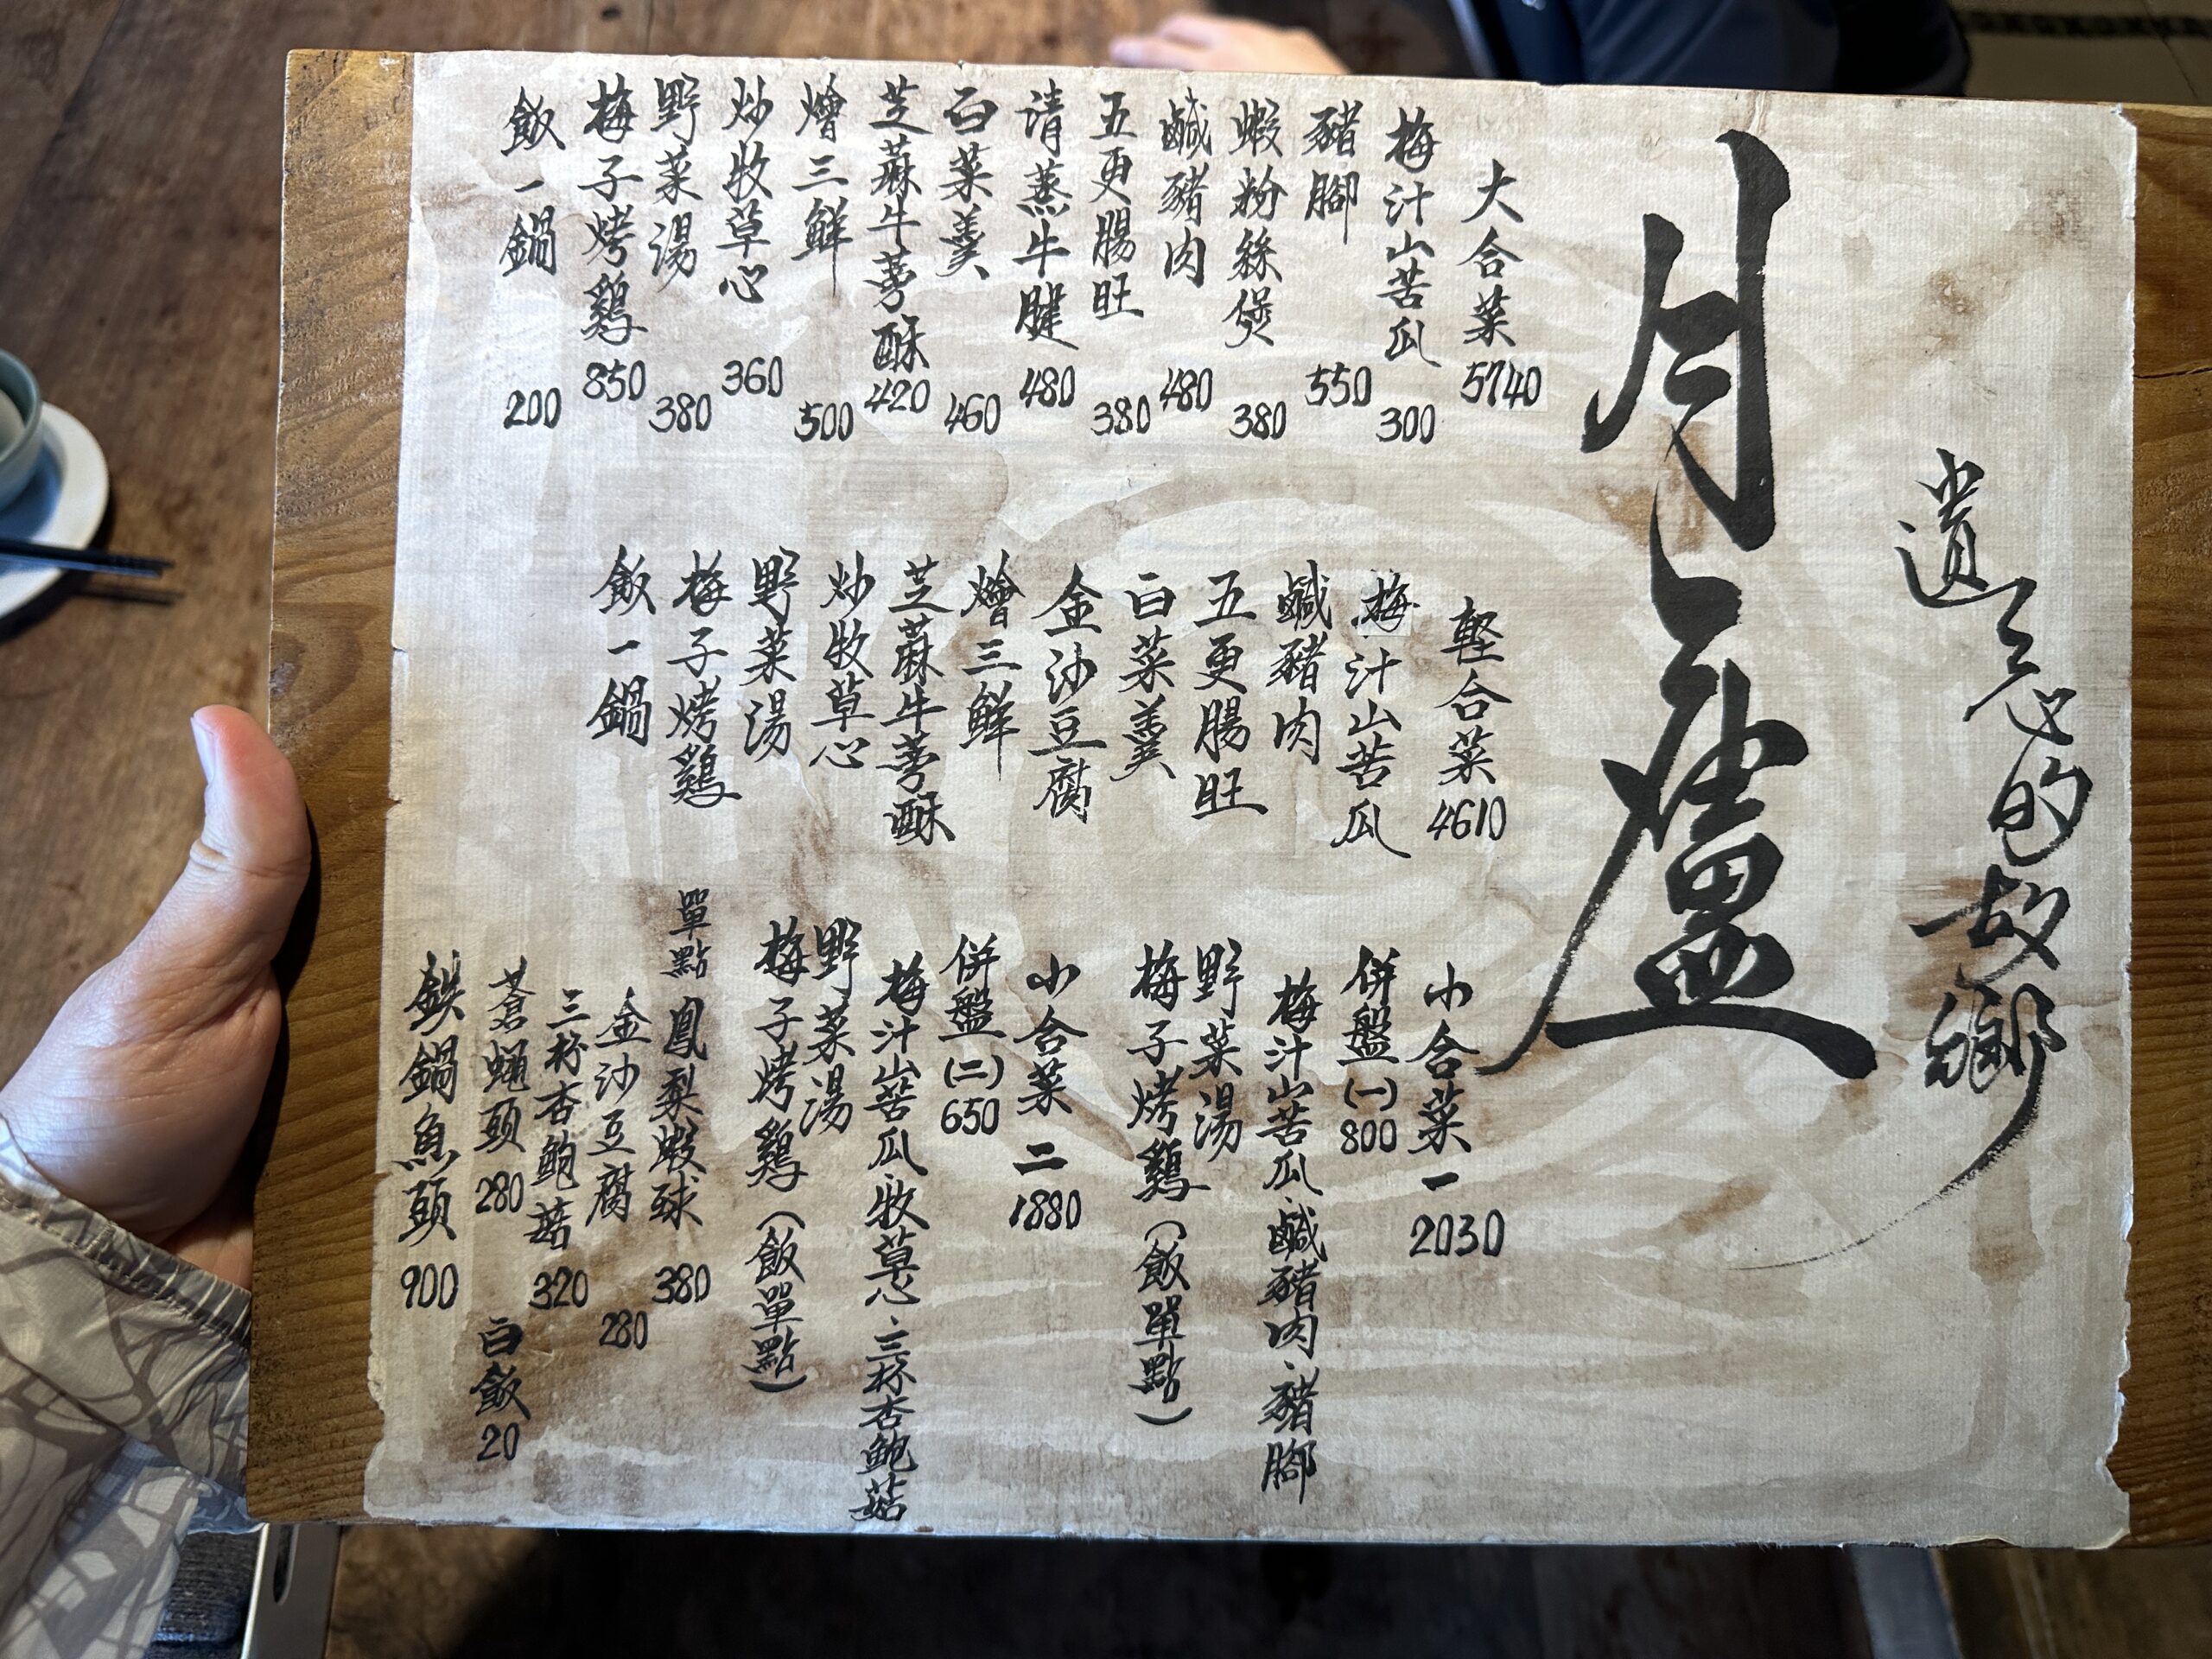 遺忘的故鄉
月廬
大合菜 5740
梅汁山苦瓜 300
豬腳 550
蝦粉絲煲 380
鹹豬肉 480
五更腸旺 380
請蒸牛腱 480
白菜羹 460
芝蔴牛蒡酥 420
燴三鮮 500
炒牧草心 360
野菜湯 380
梅子烤鷄 850
飯一鍋 200
輕合菜 4610
梅汁山苦瓜
鹹豬肉
五更腸旺
白菜羹
金沙豆腐
燴三鮮
芝蔴牛蒡酥
炒牧草心
野菜湯
梅子烤鷄
飯一鍋
小合菜一 2030
併盤(一) 800
梅汁山苦瓜、鹹豬肉、豬腳
野菜湯
梅子烤鷄(飯單點)
小合菜二 1880
併盤(二) 650
梅汁山苦瓜、牧草心、三杯杏鮑菇
野菜湯
梅子烤鷄(飯單點)
單點
鳳梨蝦球 380
金沙豆腐 280
三杯杏鮑菇 320
蒼蠅頭 280
白飯 20
鉄鍋魚頭 900